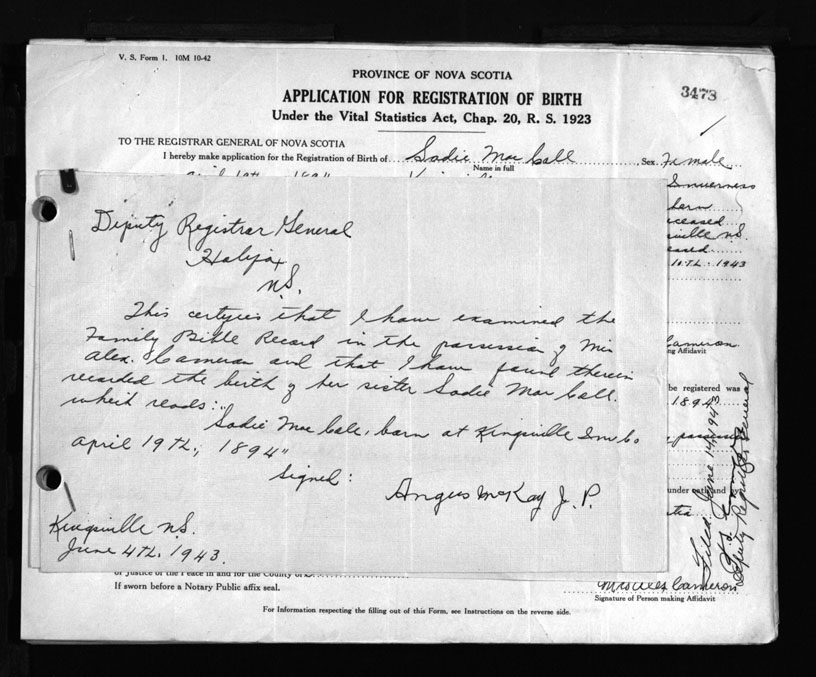 V. S. Form 1. 10M 10-42
PROVINCE OF NOVA SCOTIA
3473
APPLICATION FOR REGISTRATION OF BIRTH
Under the Vital Statistics Act, Chap. 20, R. S. 1923
TO THE REGISTRAR GENERAL OF NOVA SCOTIA
I hereby make application for the Registration of Birth of Sadie Mac Call Sex Female
Name in full
Inverness
born
eceased
sville N.S.
eased
10TL. 1943
Deputy Registrar General
Halifax
N.S.
This certifies that I have examined the
Family Bible Record in the possession of Mrs
Alex. Cameron and that I have found therein
recorded the birth of her sister Sadie Mac Call.
which reads:"
Sadie Mac Call, born at Kingsville Inv Co
April 19th, 1894"
Signed:
Angus McKay J. P.
Kingsville N.S.
June 4th, 1943.
Cameron
ng Affidavit
be registered was
1894
possession
under oath and
Filed June 14 1943
Deputy Registrar General
of Justice of the Peace in and for the County of
If sworn before a Notary Public affix seal.
Mrs Alex Cameron
Signature of Person making Affidavit
For Information respecting the filling out of this Form, see Instructions on the reverse side.